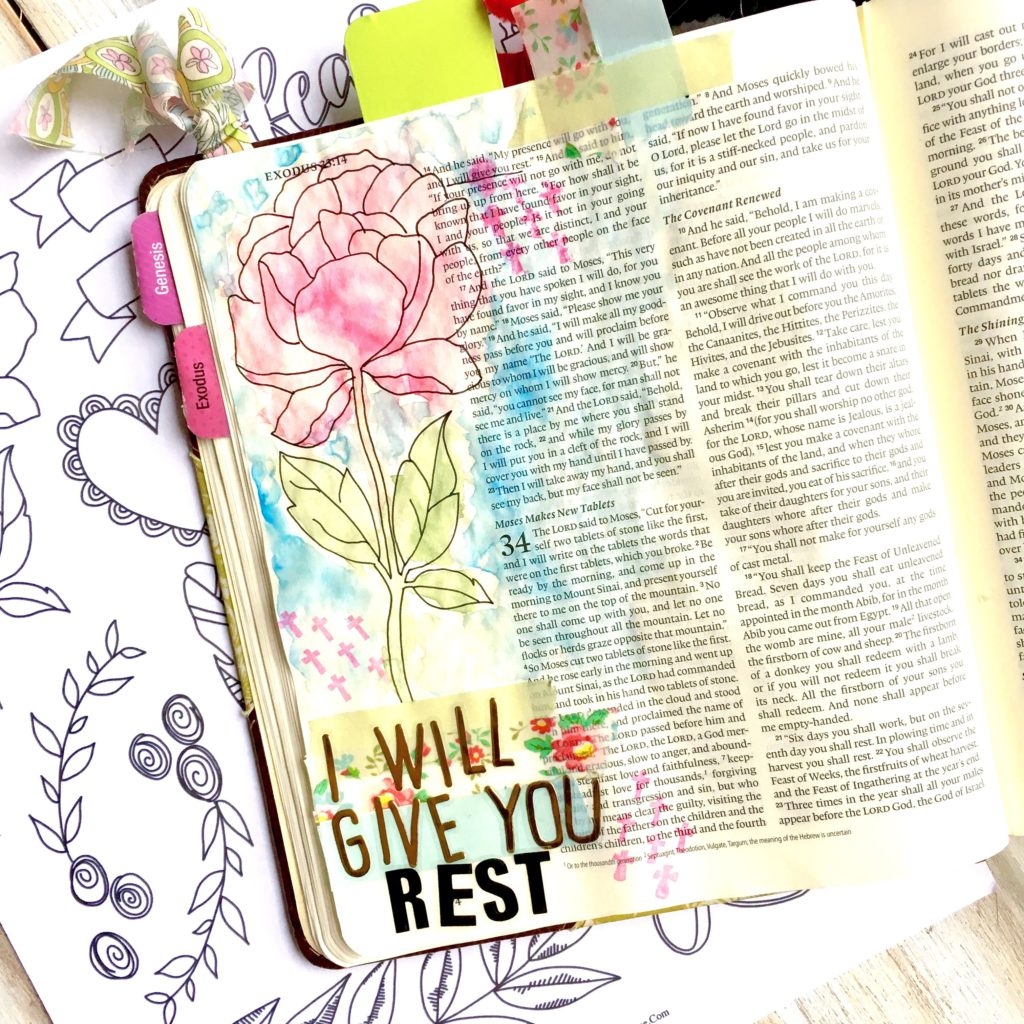 Genesis
Exodus
EXODUS 33:14
14 And he said, "My presence will go with you,
and I will give you rest." 15 And he said to him,
"If your presence will not go with me, do not
bring us up from here. 16 For how shall it be
known that I have found favor in your sight,
I and your people? Is it not in your going
with us, so that we are distinct, I and your
people, from every other people on the face
of the earth?"
17 And the LORD said to Moses, "This very
thing that you have spoken I will do, for you
have found favor in my sight, and I know you
by name." 18 Moses said, "Please show me your
glory." 19 And he said, "I will make all my good-
ness pass before you and will proclaim before
you my name 'The LORD.' And I will be gra-
cious to whom I will be gracious, and will show
mercy on whom I will show mercy. 20 But," he
said, "you cannot see my face, for man shall not
see me and live." 21 And the LORD said, "Behold,
there is a place by me where you shall stand
on the rock, 22 and while my glory passes by
I will put you in a cleft of the rock, and I will
cover you with my hand until I have passed by.
23 Then I will take away my hand, and you shall
see my back, but my face shall not be seen."
Moses Makes New Tablets
34 The LORD said to Moses, "Cut for your-
self two tablets of stone like the first,
and I will write on the tablets the words that
were on the first tablets, which you broke. 2 Be
ready by the morning, and come up in the
morning to Mount Sinai, and present yourself
there to me on the top of the mountain. 3 No
one shall come up with you, and let no one
be seen throughout all the mountain. Let no
flocks or herds graze opposite that mountain."
4 So Moses cut two tablets of stone like the first.
And he rose early in the morning and went up
Mount Sinai, as the LORD had commanded
and took in his hand two tablets of stone.
descended in the cloud and stood
and proclaimed the name of
LORD passed before him and
The LORD, the LORD, a God mer-
gracious, slow to anger, and abound-
steadfast love and faithfulness, 7 keep-
steadfast love for thousands, forgiving
and transgression and sin, but who
means clear the guilty, visiting the
of the fathers on the children and the
children's children, to the third and the fourth
generation." 8 And Moses quickly bowed his
head toward the earth and worshiped. 9 And he
said, "If now I have found favor in your sight,
O Lord, please let the Lord go in the midst of
us, for it is a stiff-necked people, and pardon
our iniquity and our sin, and take us for your
inheritance."
The Covenant Renewed
10 And he said, "Behold, I am making a cov-
enant. Before all your people I will do marvels,
such as have not been created in all the earth or
in any nation. And all the people among whom
you are shall see the work of the LORD, for it is
an awesome thing that I will do with you.
11 "Observe what I command you this day.
Behold, I will drive out before you the Amorites,
the Canaanites, the Hittites, the Perizzites, the
Hivites, and the Jebusites. 12 Take care, lest you
make a covenant with the inhabitants of the
land to which you go, lest it become a snare in
your midst. 13 You shall tear down their altars
and break their pillars and cut down their
Asherim 14 (for you shall worship no other god,
for the LORD, whose name is Jealous, is a jeal-
ous God), 15 lest you make a covenant with the
inhabitants of the land, and when they whore
after their gods and sacrifice to their gods and
you are invited, you eat of his sacrifice, 16 and you
take of their daughters for your sons, and their
daughters whore after their gods and make
your sons whore after their gods.
17 "You shall not make for yourself any gods
of cast metal.
18 "You shall keep the Feast of Unleavened
Bread. Seven days you shall eat unleavened
bread, as I commanded you, at the time
appointed in the month Abib, for in the month
Abib you came out from Egypt. 19 All that open
the womb are mine, all your male livestock,
the firstborn of cow and sheep. 20 The firstborn
of a donkey you shall redeem with a lamb,
or if you will not redeem it you shall break
its neck. All the firstborn of your sons you
shall redeem. And none shall appear before
me empty-handed.
21 "Six days you shall work, but on the sev-
enth day you shall rest. In plowing time and in
harvest you shall rest. 22 You shall observe the
Feast of Weeks, the firstfruits of wheat harvest,
and the Feast of Ingathering at the year's end.
23 Three times in the year shall all your males
appear before the LORD God, the God of Israel.
1 Or to the thousandth generation 2 Septuagint, Theodotion, Vulgate, Targum; the meaning of the Hebrew is uncertain
24 For I will cast out
enlarge your borders;
land, when you go
LORD your God three
25 "You shall not
fice with anything
of the Feast of the
morning. 26 The
ground you shall
LORD your God. Y
in its mother's mi
27 And the LORD
these words, for
words I have m
with Israel." 28 S
forty days and
bread nor dra
tablets the w
Commandme
The Shining
29 When
Sinai, with
in his hand
tain, Moses
face shone
God. 30 A
Moses, an
and they
Moses c
leaders
and Mo
the peo
of Is
I WILL
GIVE YOU
REST
.Com